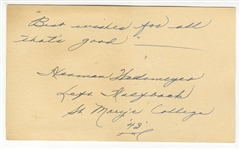 "Best wishes for all
that's good"
Herman Wedemeyer
Left Halfback
St. Mary's College
'43'